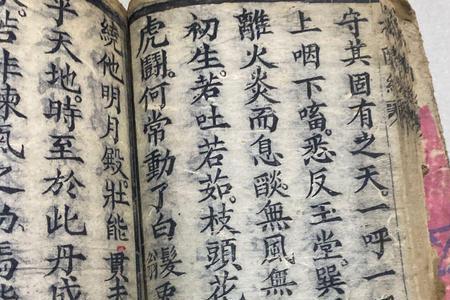 守其固有之天。一呼一
上咽下畜。悉反玉堂。巽
離火炎而息燄。無風無
初生。若吐若茹。枝頭花
虎鬪。何常動了白
繞他明月殿。壯能
乎天地。時至於此丹成
非煉氣之功焉